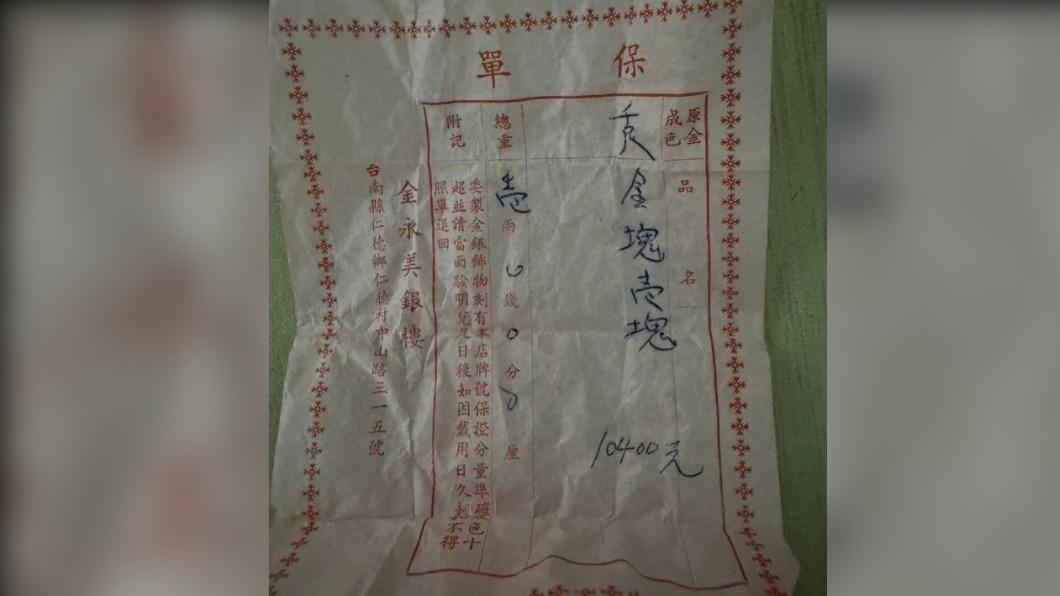 保單
原金
成色
品名
金塊壱塊
10400元
總重
壱兩0錢0分0厘
附記
委製金銀飾物刻有本店牌號保證分量準確色十
超並請當面驗明兌足日後如因戴用日久輕不得
照單退回
金永美銀樓
台南縣仁德鄉仁德村中山路三一五號